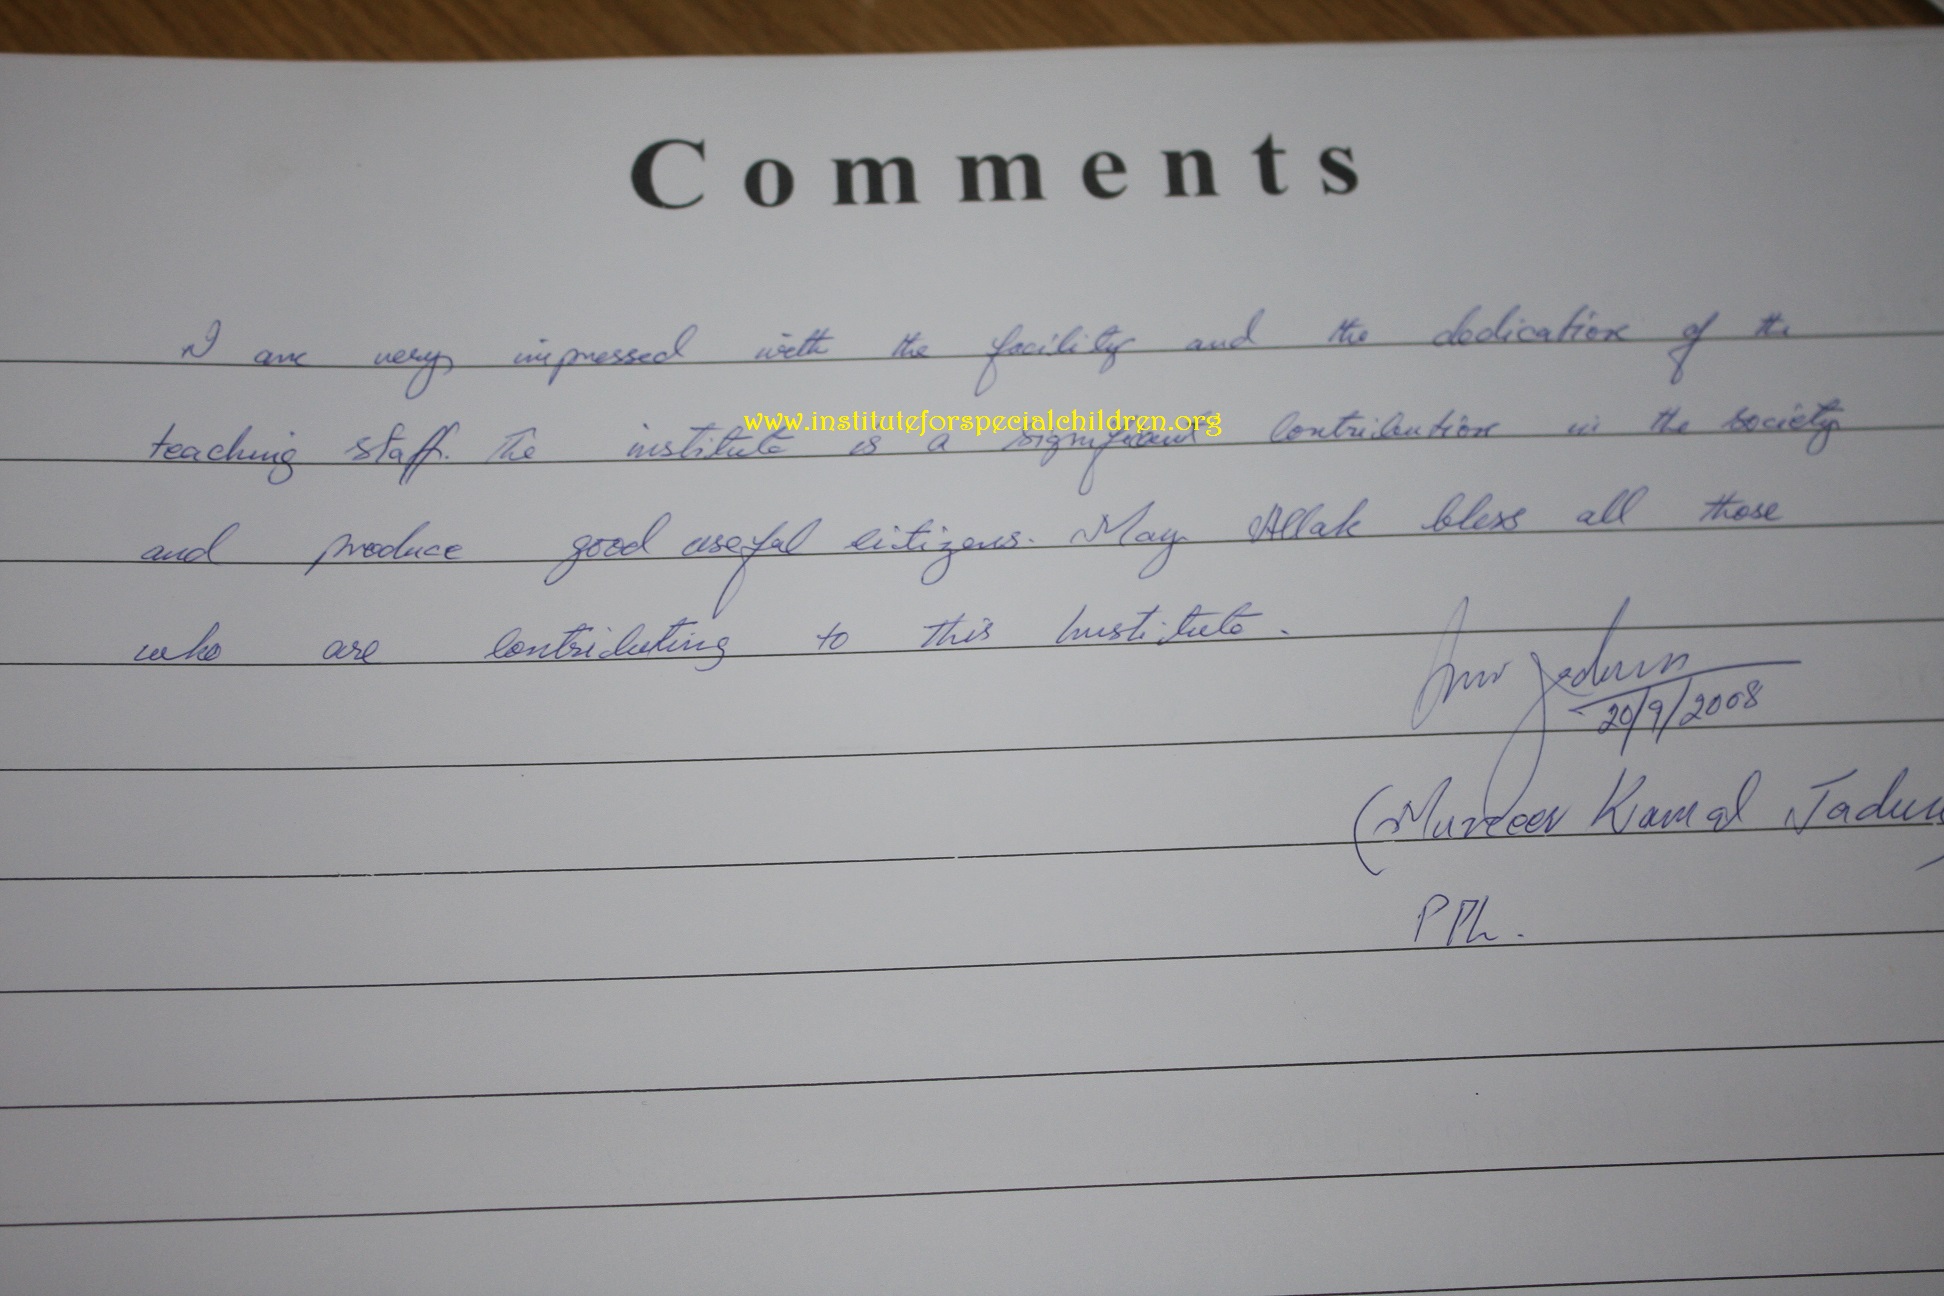 Comments
I am very impressed with the facility and the dedication of the
www.instituteforspecialchildren.org
teaching staff. The institute is a significant contribution in the society
and produce good useful citizens. May Allah bless all those
who are contributing to this Institute.
20/9/2008
(Muneer Kamal Jadun
)